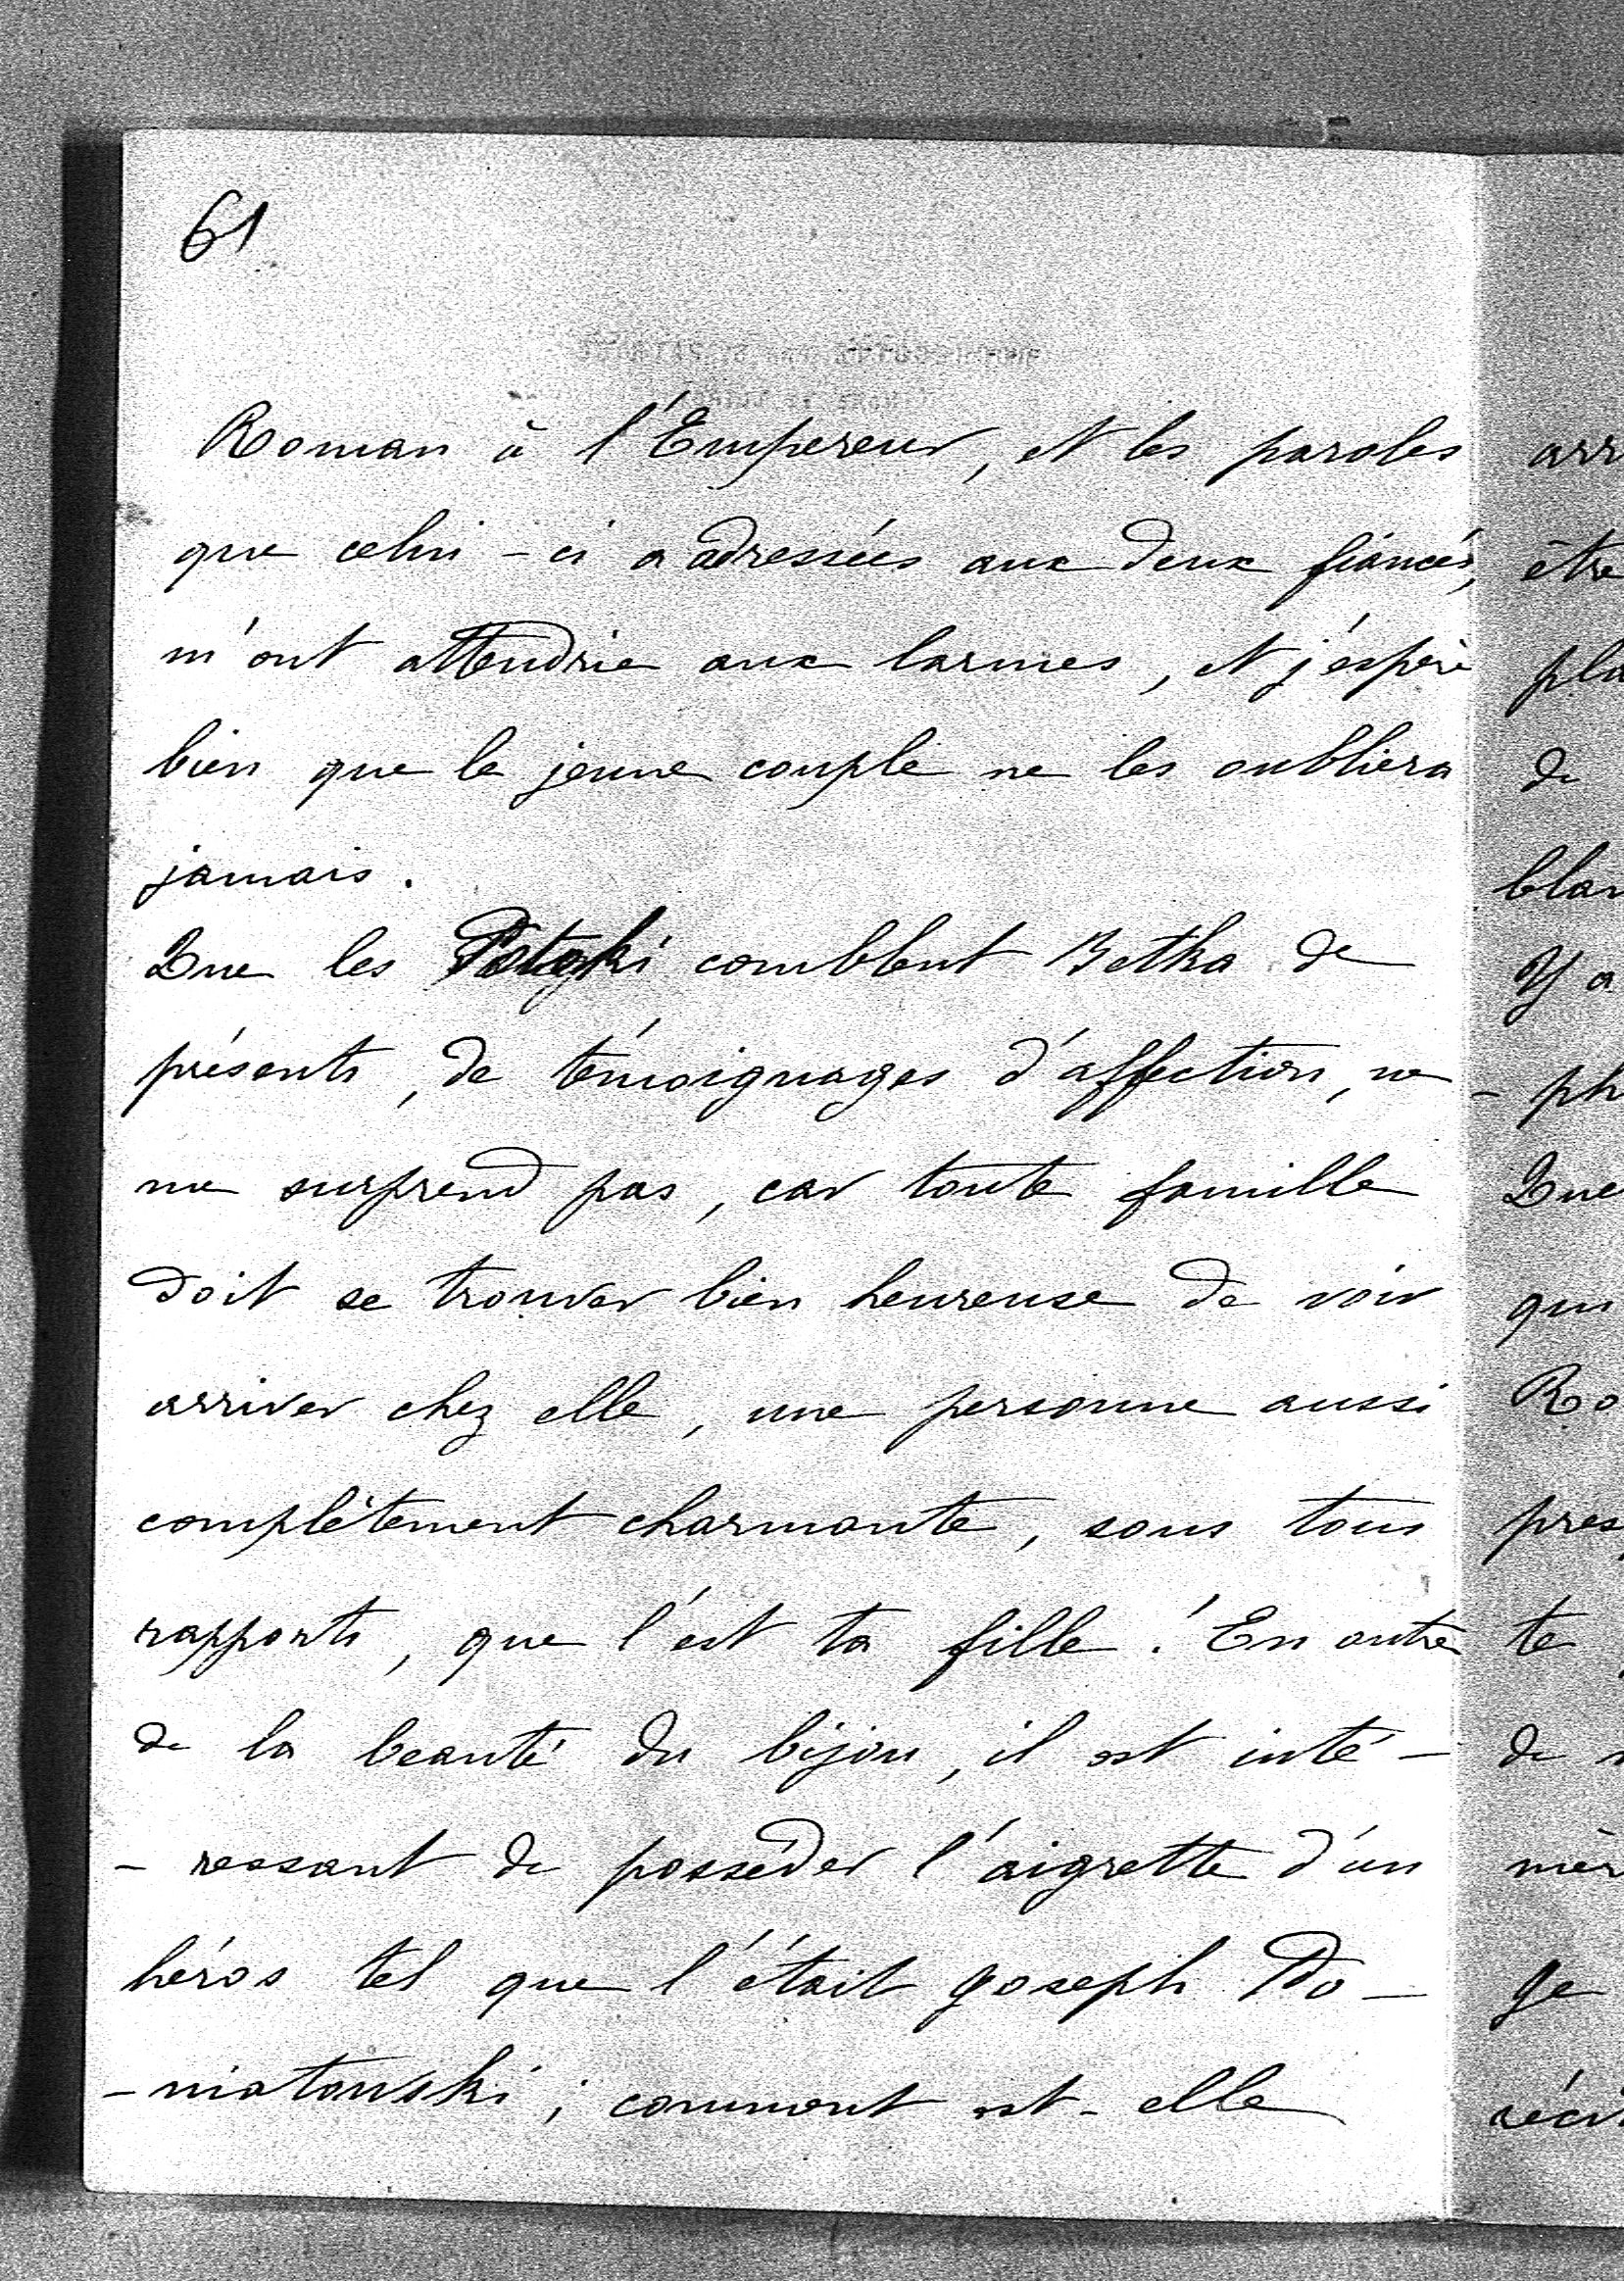 61
Roman à l'Empereur, et les paroles
que celui-ci a adressées aux deux fiancés,
m'ont attendrie aux larmes, et j'espère
bien que le jeune couple ne les oubliera
jamais.
Que les Potoçki comblent Betka de
présents, de témoignages d'affection, ne
me surprend pas, car toute famille
doit se trouver bien heureuse de voir
arriver chez elle, une personne aussi
complètement charmante, sous tous
rapports, que l'est ta fille! En outre
de la beauté du bijou, il est inté-
-ressant de posséder l'aigrette d'un
héros tel que l'était Joseph Po-
-niatowski; comment est-elle
arr
être
pla
de
blan
Y a
- ph
Que
qui
Ro
pres
te
de
mèr
Je
récr